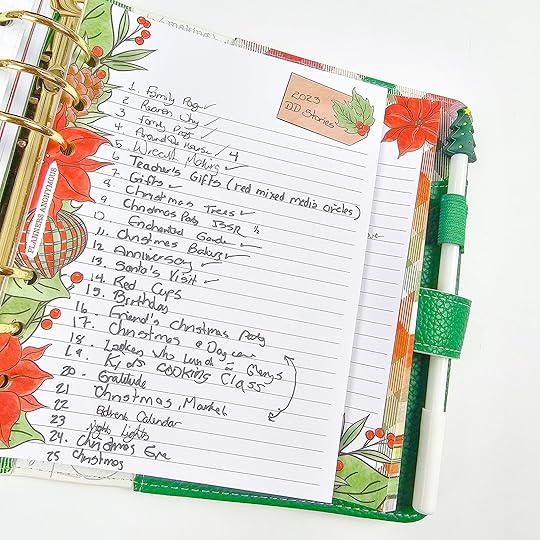 2023
DD Stories
1 Family Page ✓
2 Reason Why ✓
3 Family Page ✓
4 Around the House / 4
5 Wreath Making ✓
6 Teacher's Gifts (red mixed media circles)
7 Gifts ✓
8 Christmas Trees ✓
9 Christmas Party BSR ½
10 Enchanted Garden ✓
11 Christmas Bakery ✓
12 Anniversary ✓
13 Santa's Visit ✓
14. Red Cups
15. Birthday
16. Friend's Christmas Party
17. Christmas @ Day care
18. Ladies who Lunch @ Cheryl's
19. Kids COOKING Class
20. Gratitude
21 Christmas Market
22 Advent Calendar
23 Night Lights
24. Christmas Eve
25 Christmas
PLANNERS ANONYMOUS